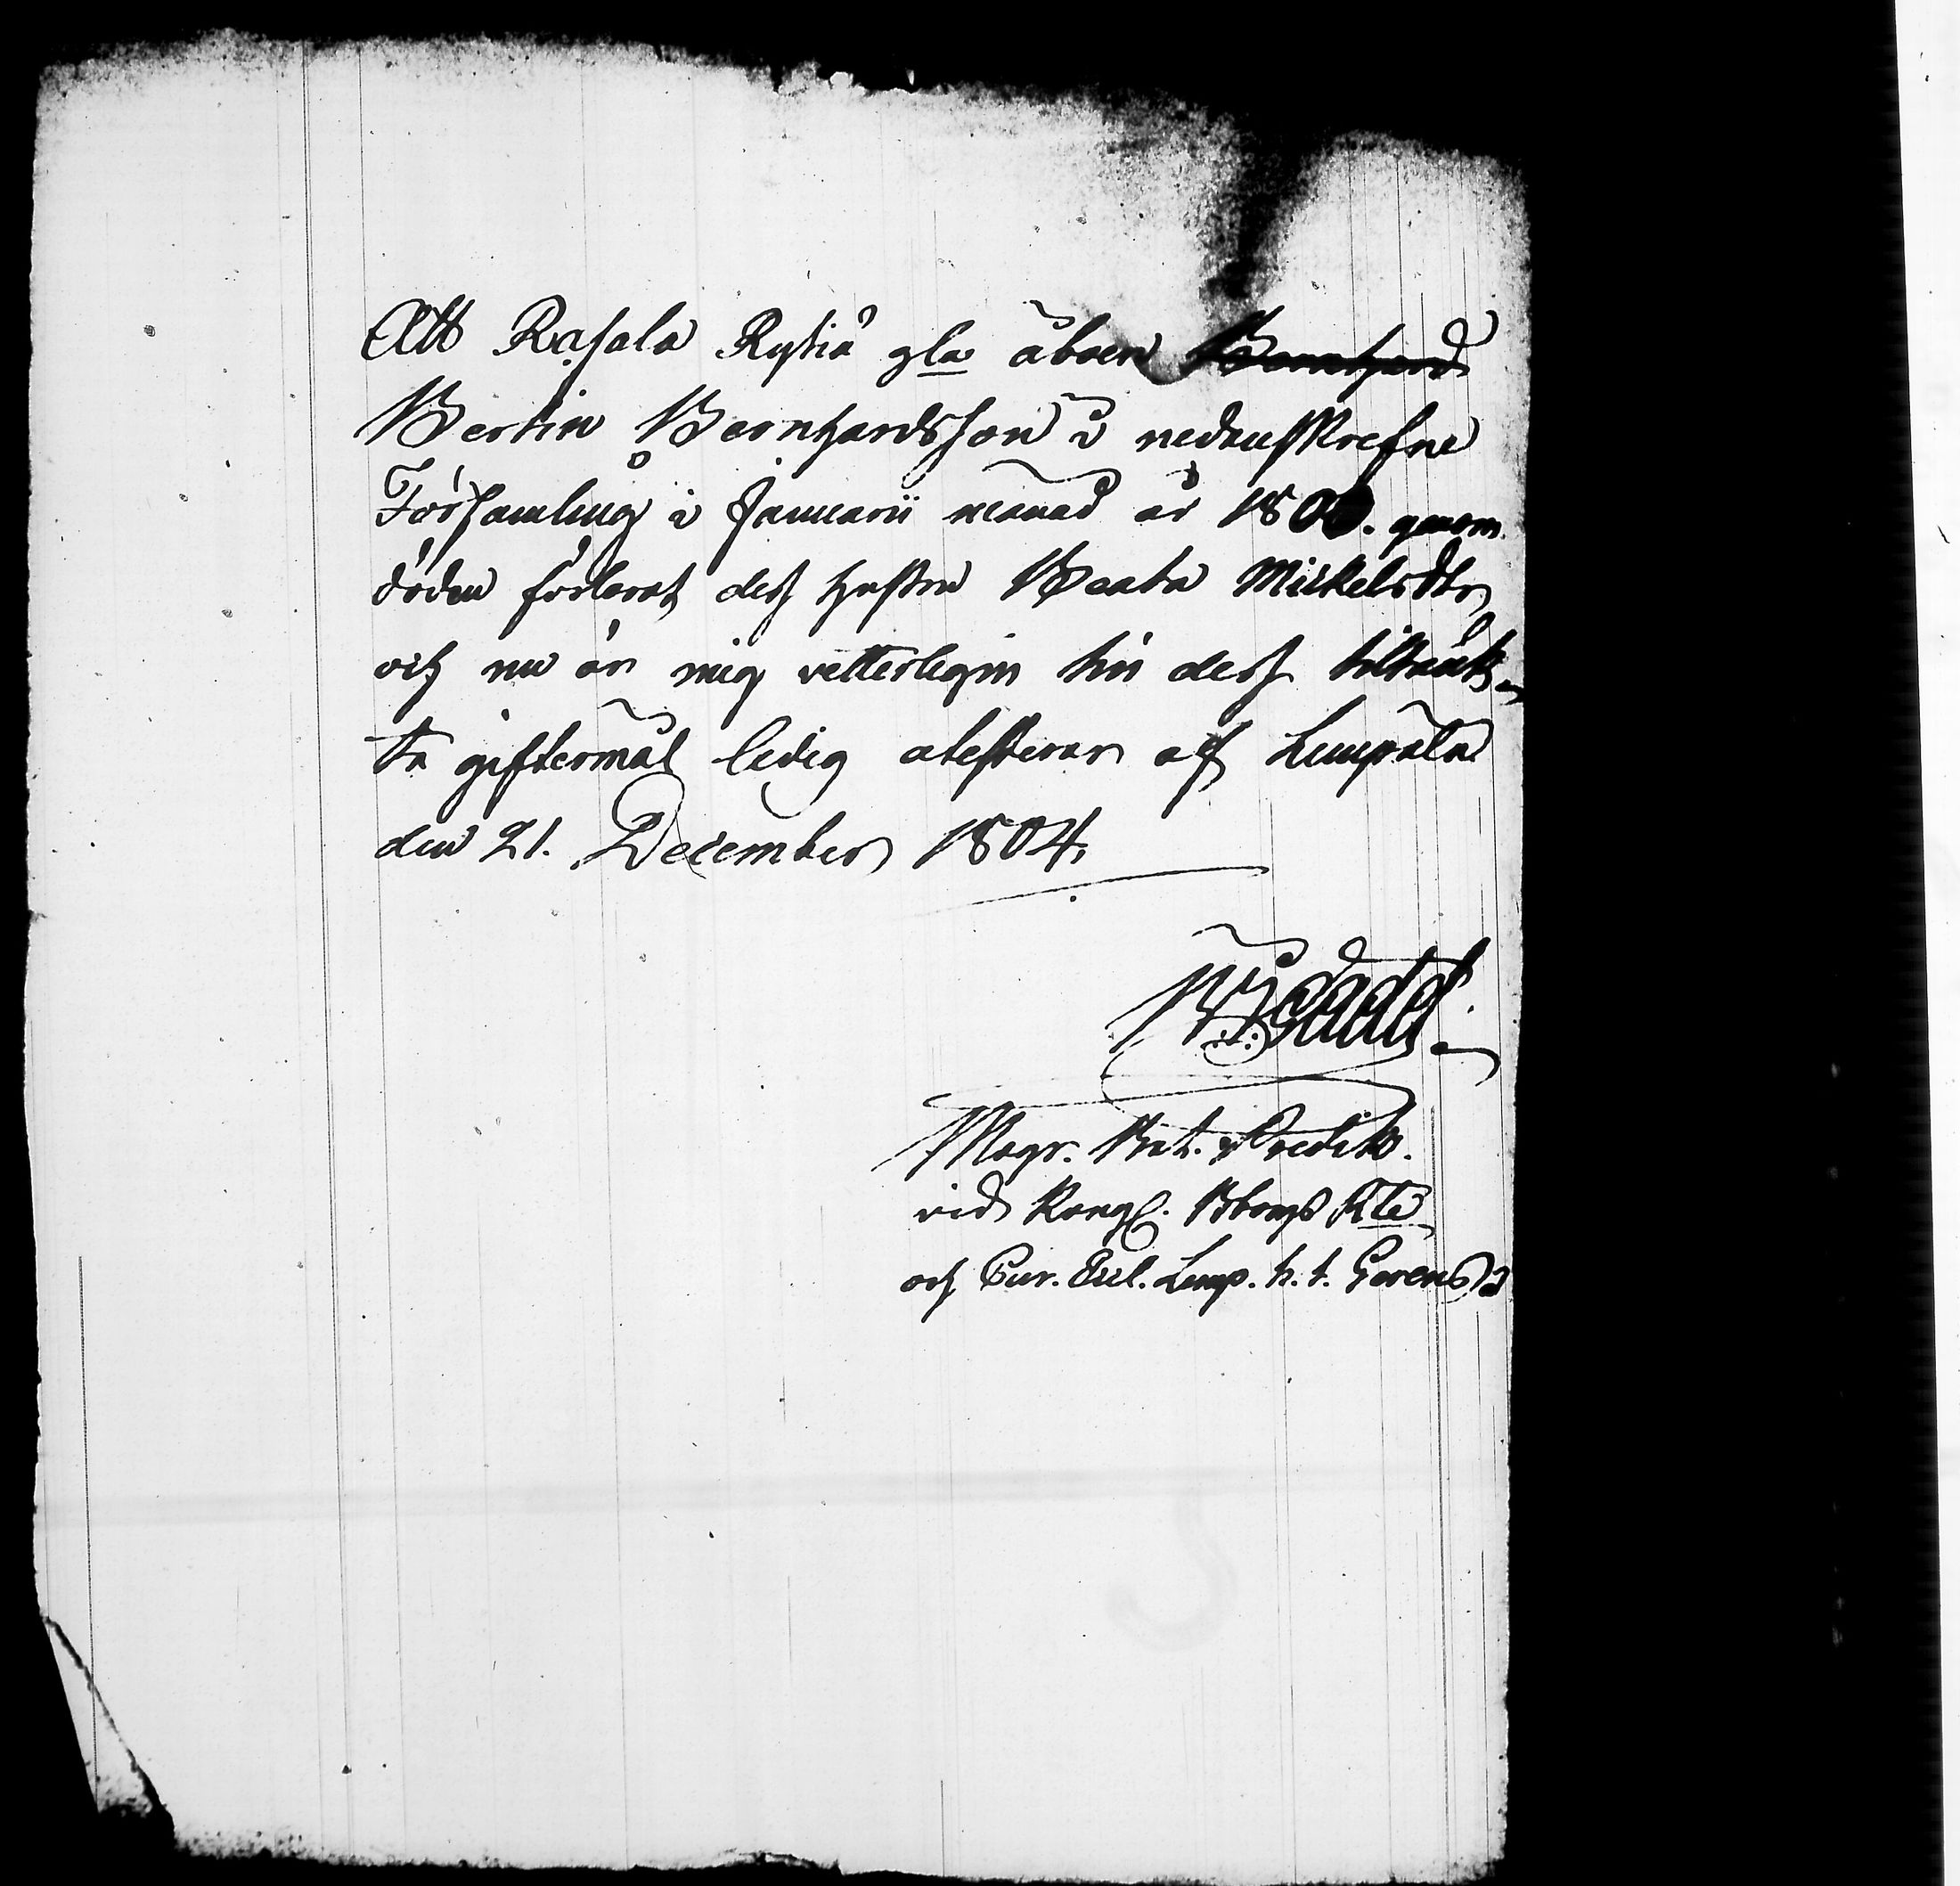 Att Rajala Rystiä gla åboen Bernhard
Bertin Bernhardsson i nedanskrefne
Församling i Januarii månad år 180 genom
döden förlorat dess hustru Beata Mickelsdtr
och nu är mig vetterlegen till dess tiltänk-
ta giftermål ledig atesteras af Lempälä
den 21. December 1804.
Magr. Bat. Predik.
vid Kongl. Åboags Rte
och Cur. Eccl. Lemp. h. t. Gerens